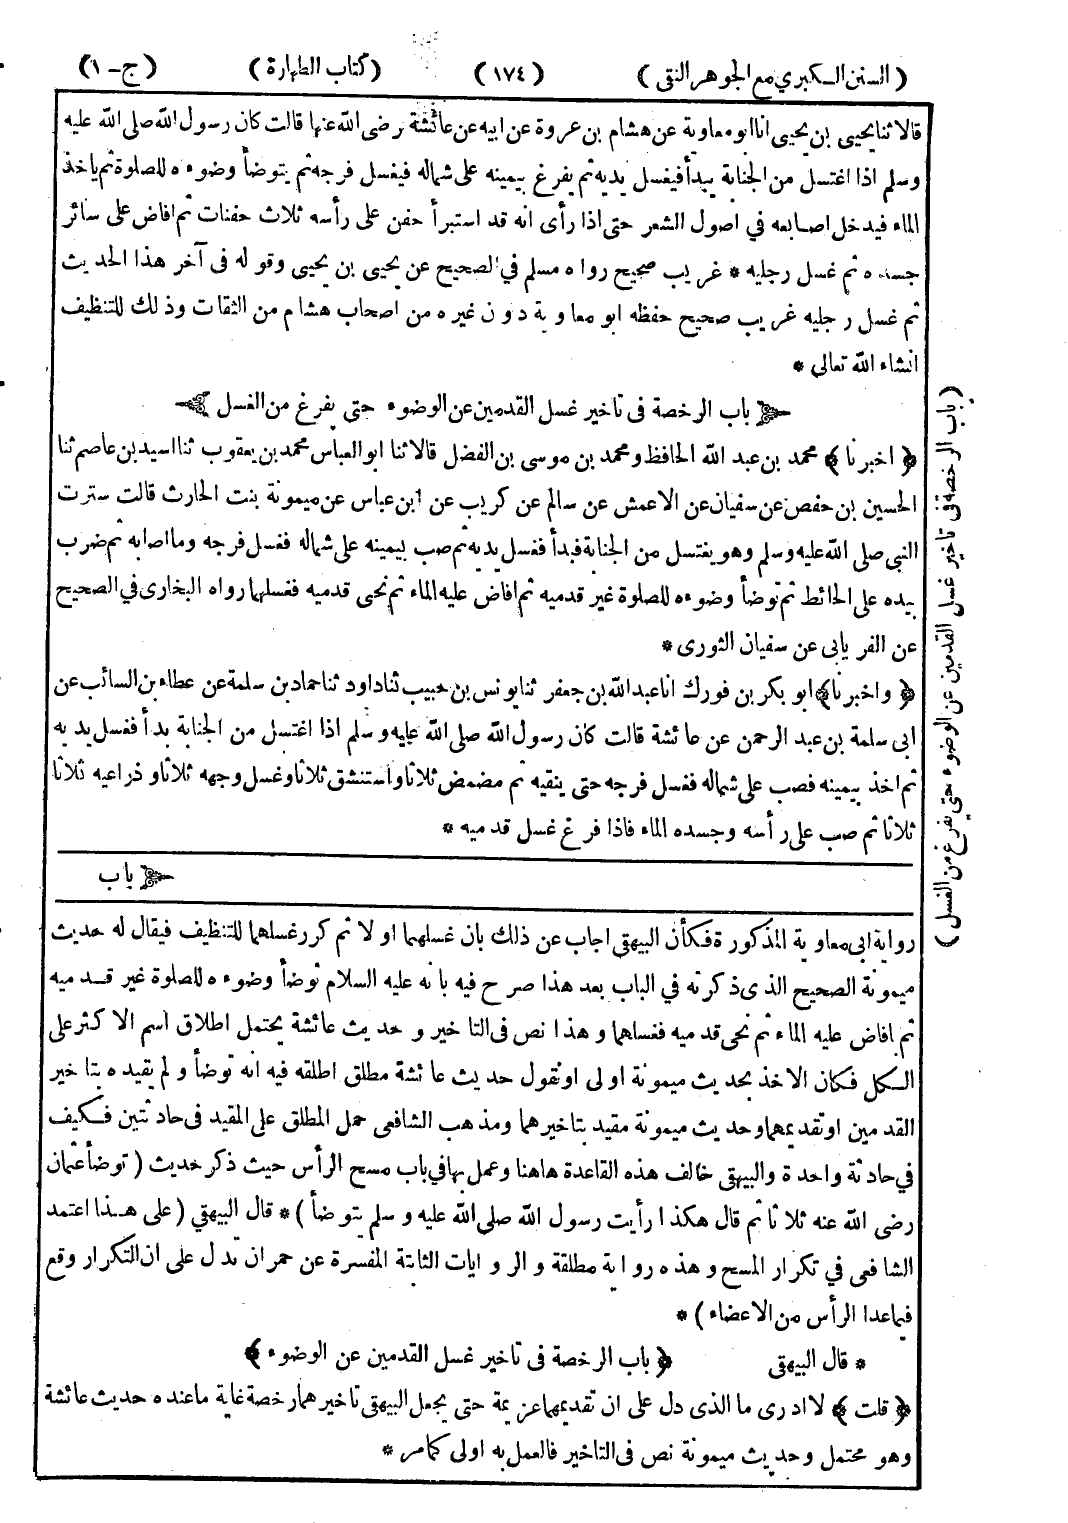 (السنن الكبرى مع الجوهر النقى) (١٧٤) (كتاب الطهارة) (ج - ١)
قالا ثنا يحيى بن يحيى انا ابو معاوية عن هشام بن عروة عن ابيه عن عائشة رضى الله عنها قالت كان رسول الله صلى الله عليه
وسلم اذا اغتسل من الجنابة يبدأ فيغسل يديه ثم يفرغ بيمينه على شماله فيغسل فرجه ثم يتوضأ وضوءه للصلوة ثم يأخذ
الماء فيدخل اصابعه في اصول الشعر حتى اذا رأى انه قد استبرأ حفن على رأسه ثلاث حفنات ثم افاض على سائر
جسده ثم غسل رجليه * غريب صحيح رواه مسلم في الصحيح عن يحيى بن يحيى وقوله فى آخر هذا الحديث
ثم غسل رجليه غريب صحيح حفظه ابو معاوية دون غيره من اصحاب هشام من الثقات وذلك للتنظيف
انشاء الله تعالى *
باب الرخصة في تاخير غسل القدمين عن الوضوء حتى يفرغ من الغسل
﴿ اخبرنا ﴾ محمد بن عبد الله الحافظ ومحمد بن موسى بن الفضل قالا ثنا ابو العباس محمد بن يعقوب ثنا اسيد بن عاصم ثنا
الحسين بن حفص عن سفيان عن الاعمش عن سالم عن كريب عن ابن عباس عن ميمونة بنت الحارث قالت سترت
النبى صلى الله عليه وسلم وهو يغتسل من الجنابة فبدأ فغسل يديه ثم صب بيمينه على شماله فغسل فرجه وما اصابه ثم ضرب
بيده على الحائط ثم توضأ وضوءه للصلوة غير قدميه ثم افاض عليه الماء ثم نحى قدميه فغسلهما رواه البخارى في الصحيح
عن الفريابى عن سفيان الثورى *
﴿ واخبرنا ﴾ ابو بكر بن فورك انا عبد الله بن جعفر ثنا يونس بن حبيب ثنا داود ثنا حماد بن سلمة عن عطاء بن السائب عن
ابى سلمة بن عبد الرحمن عن عائشة قالت كان رسول الله صلى الله عليه وسلم اذا اغتسل من الجنابة بدأ فغسل يديه
ثم اخذ بيمينه فصب على شماله فغسل فرجه حتى ينقيه ثم مضمض ثلاثا واستنشق ثلاثا وغسل وجهه ثلاثا وذراعيه ثلاثا
ثلاثا ثم صب على رأسه وجسده الماء فاذا فرغ غسل قدميه *
باب
رواية ابى معاوية المذكورة فكأن البيهقى اجاب عن ذلك بان غسلهما اولا ثم كرر غسلهما للتنظيف فيقال له حديث
ميمونة الصحيح الذى ذكرته في الباب بعد هذا صرح فيه بانه عليه السلام توضأ وضوءه للصلوة غير قدميه
ثم افاض عليه الماء ثم نحى قدميه فغسلهما وهذا نص فى التاخير وحديث عائشة يحتمل اطلاق اسم الاكثر على
الكل فكان الاخذ بحديث ميمونة اولى اونقول حديث عائشة مطلق اطلقه فيه انه توضأ ولم يقيده بتاخير
القدمين اوتقديمهما وحديث ميمونة مقيد بتاخيرهما ومذهب الشافعى حمل المطلق على المقيد فى حادثتين فكيف
في حادثة واحدة والبيهقى خالف هذه القاعدة هاهنا وعمل بها في باب مسح الرأس حيث ذكر حديث (توضأ عثمان
رضى الله عنه ثلاثا ثم قال هكذا رأيت رسول الله صلى الله عليه وسلم يتوضأ) * قال البيهقى (على هذا اعتمد
الشافعى في تكرار المسح وهذه رواية مطلقة والروايات الثابتة المفسرة عن حمران تدل على ان التكرار وقع
فيما عدا الرأس من الاعضاء) *
* قال البيهقى ﴿ باب الرخصة فى تاخير غسل القدمين عن الوضوء ﴾
﴿ قلت ﴾ لا ادرى ما الذى دل على ان تقديمهما عزيمة حتى يجعل البيهقى تاخيرهما رخصة غاية ما عنده حديث عائشة
وهو محتمل وحديث ميمونة نص فى التاخير فالعمل به اولى كما مر *
(باب الرخصة فى تاخير غسل القدمين عن الوضوء حتى يفرغ من الغسل)